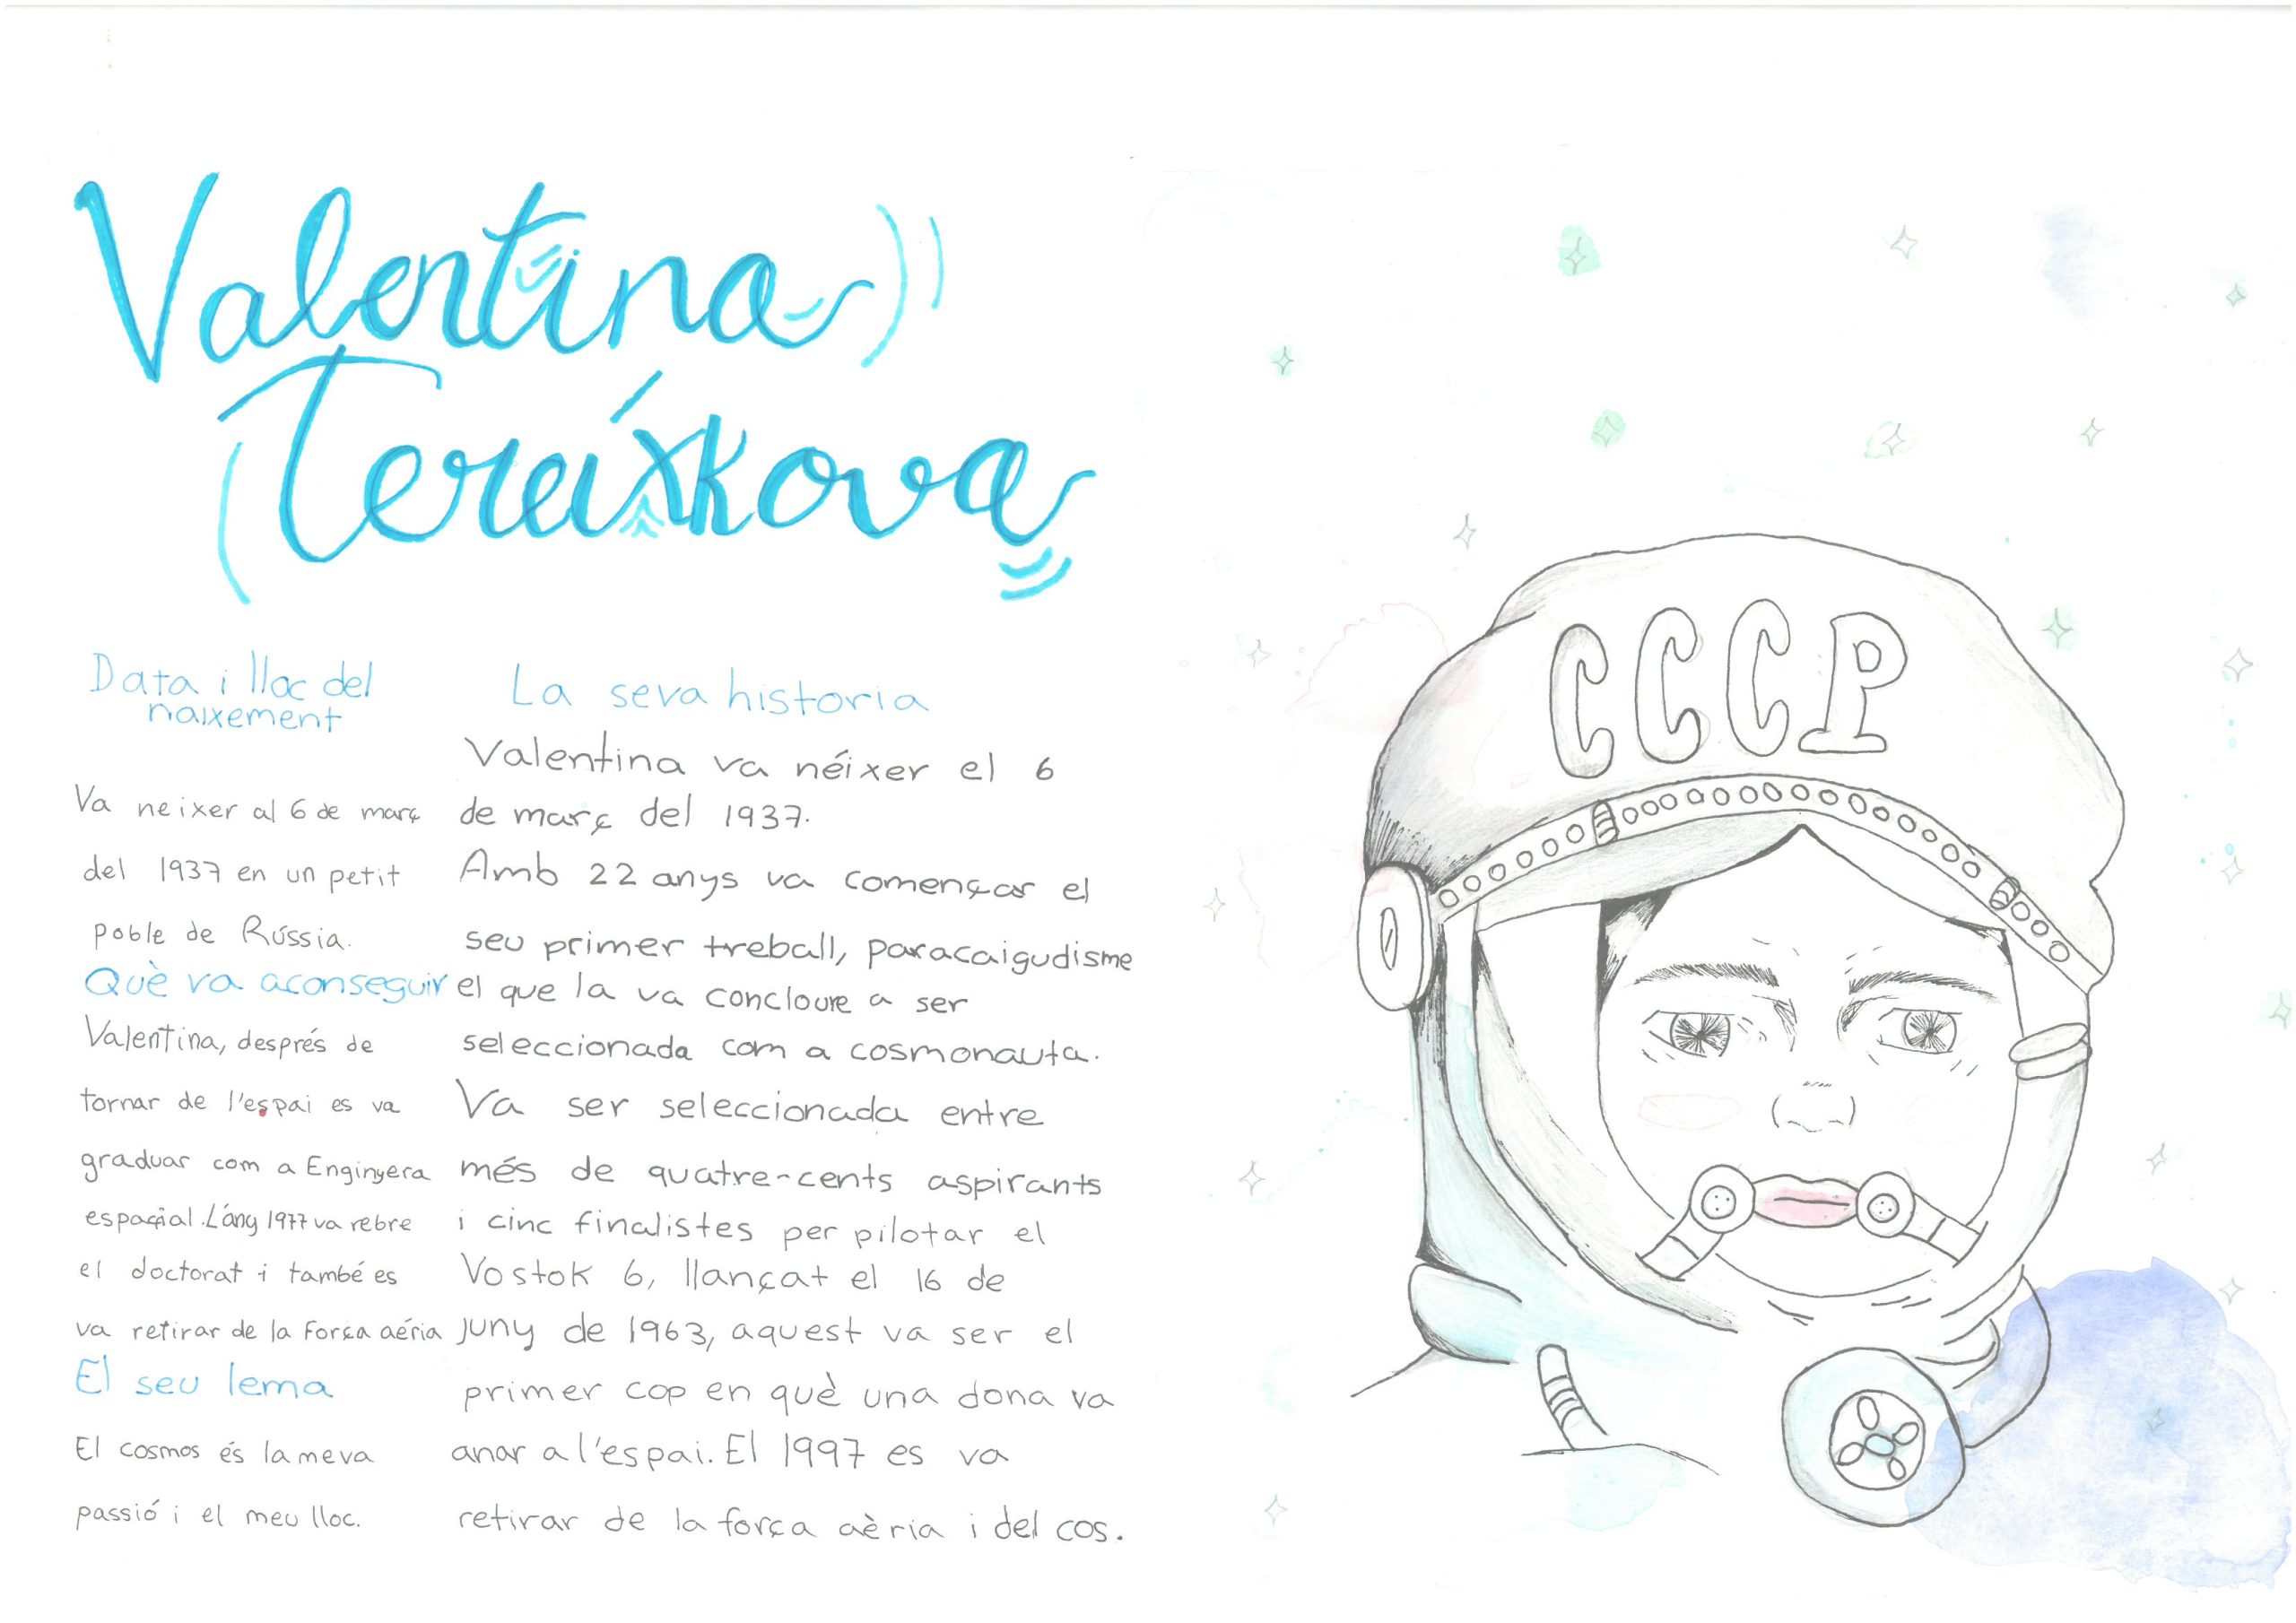 Valentina
Tereíxkova
Data i lloc del
naixement
Va neixer al 6 de març
del 1937 en un petit
poble de Rússia.
Què va aconseguir
Valentina, després de
tornar de l'espai es va
graduar com a Enginyera
espaçial. L'any 1977 va rebre
el doctorat i també es
va retirar de la força aéria
El seu lema
El cosmos és la meva
passió i el meu lloc.
La seva historia
Valentina va néixer el 6
de març del 1937.
Amb 22 anys va començar el
seu primer treball, paracaigudisme
el que la va concloure a ser
seleccionada com a cosmonauta.
Va ser seleccionada entre
més de quatre-cents aspirants
i cinc finalistes per pilotar el
Vostok 6, llançat el 16 de
juny de 1963, aquest va ser el
primer cop en què una dona va
anar a l'espai. El 1997 es va
retirar de la força aèria i del cos.
CCCP